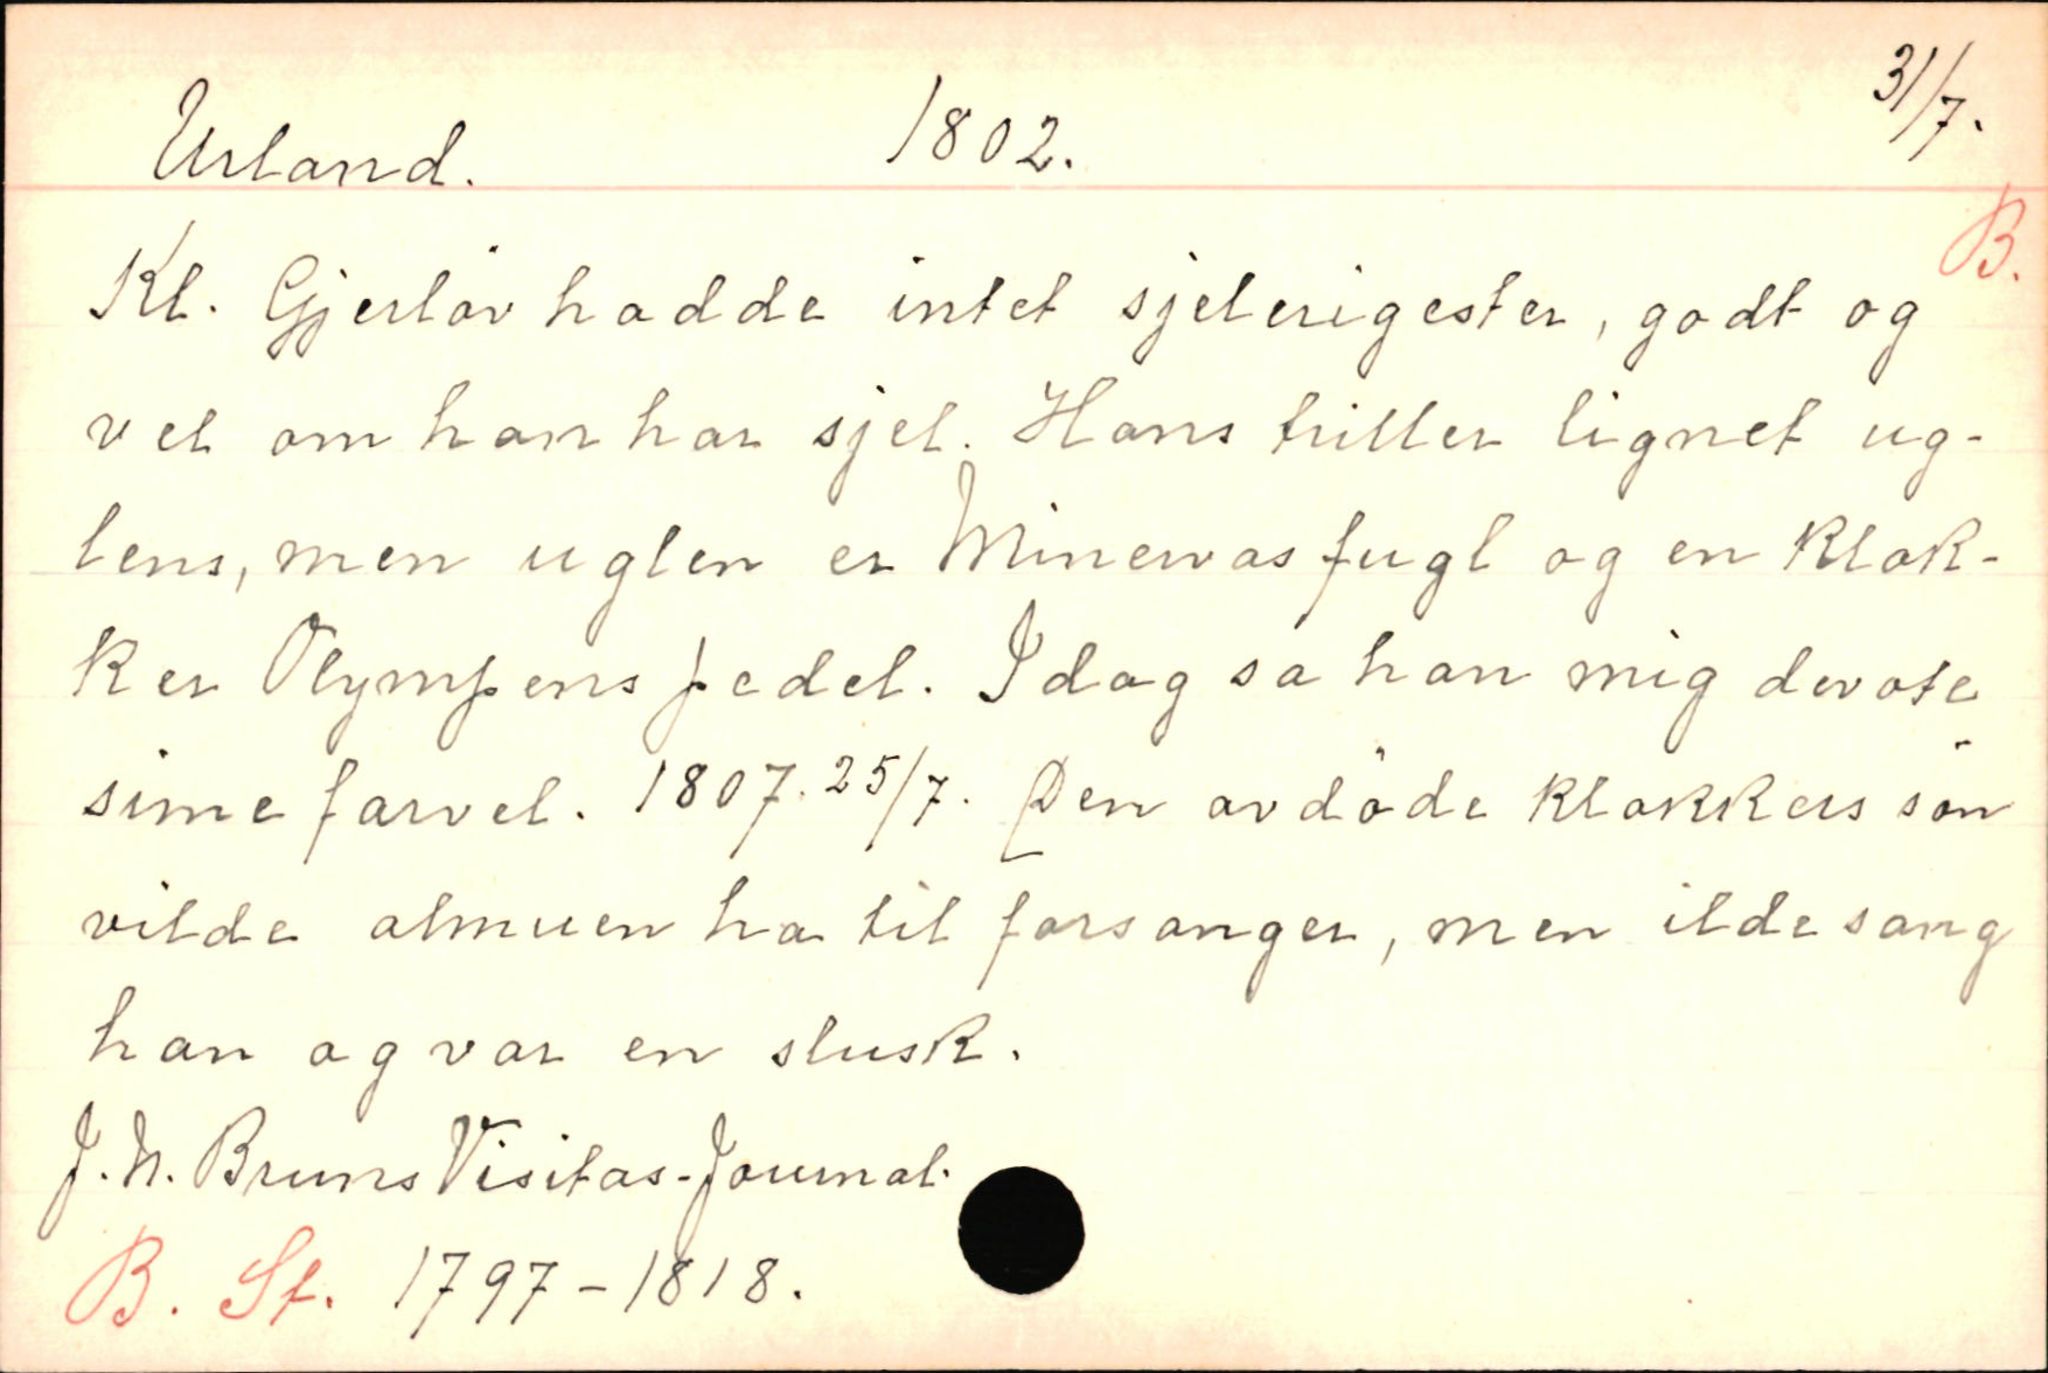 Urland. 1802. 31/7.
B.
Kl. Gjerlöv hadde intet sjelerigester, godt og
vel om han har sjel. Hans triller lignet ug-
lens, men uglen er Minervas fugl og en klok-
ker Olympens pedel. Idag sa han mig devote
sime farvel. 1807. 25/7. Den avdöde klokkers sön
vilde almuen ha til forsanger, men ilde sang
han og var en slusk.
J. N. Bruns Visitas-Journal.
B. St. 1797-1818.